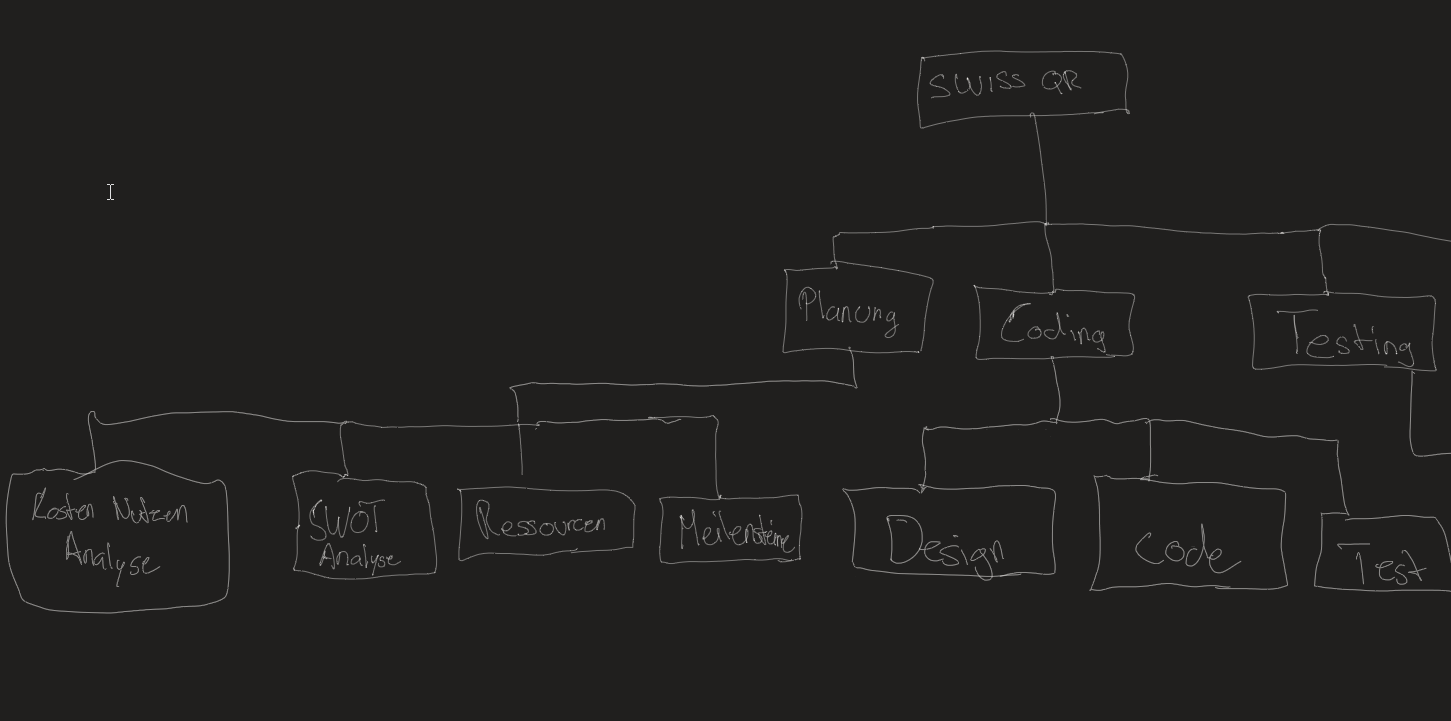 SWISS QR
Planung
Coding
Testing
Kosten Nutzen
Analyse
SWOT
Analyse
Ressourcen
Meilensteine
Design
Code
Test